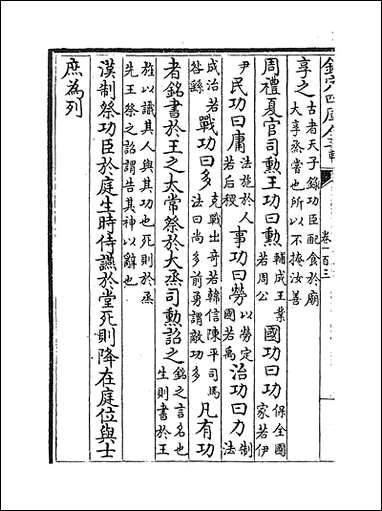 欽定四庫全書 卷一百三
享之 古者天子錄功臣配食於廟 大享烝嘗也所以不掩汝善
周禮夏官司勲王功曰勲 輔成王業 若周公 國功曰功 保全國 家若伊
尹 民功曰庸 法施於人 若后稷 事功曰勞 以勞定 國若禹 治功曰力 制 法
成治若 咎繇 戰功曰多 克戰出奇若韓信陳平司馬 法曰尚多前勇謂敵功多 凡有功
者銘書於王之太常祭於大烝司勲詔之 銘之言名也 生則書於王
旌以識其人與其功也死則於烝 先王祭之詔謂告其神以辭也
漢制祭功臣於庭生時侍讌於堂死則降在庭位與士
庶為列